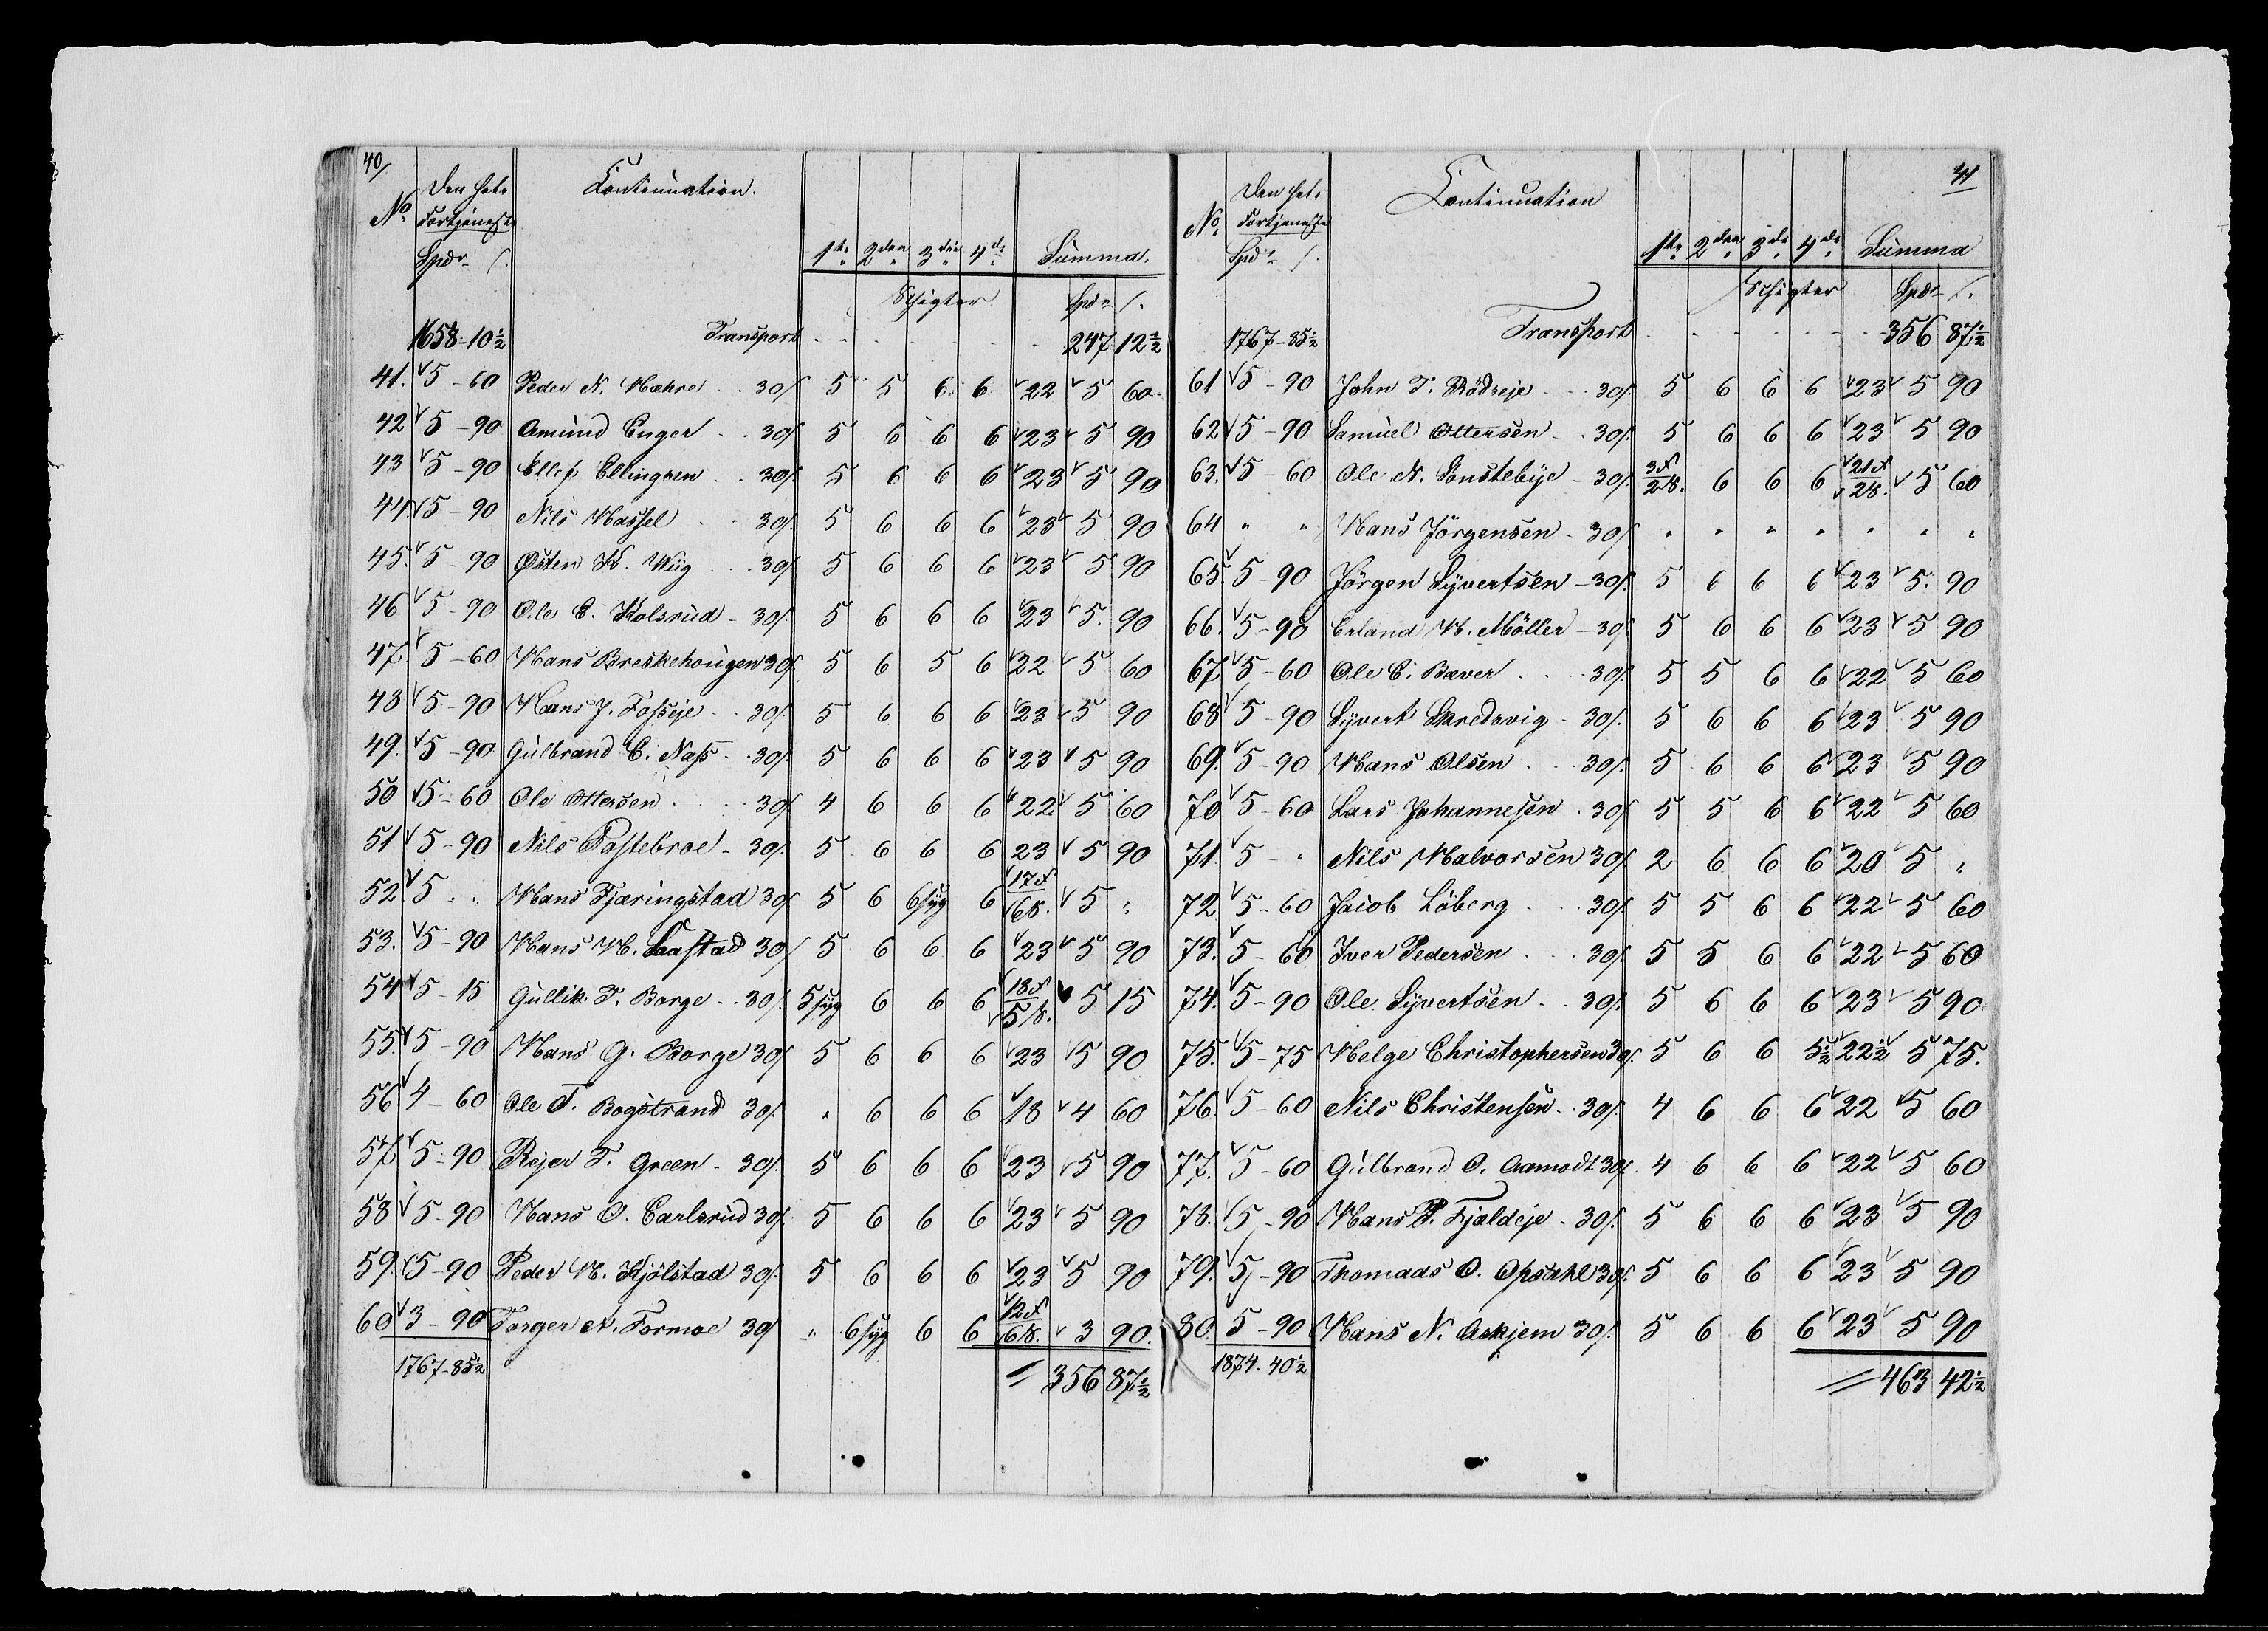 40/
Den hele Continuation.
No. Fortjeneste
Spdr. s. 1ste 2den 3die 4de Summa.
Schigter Spdr. s.
1658-10½ Transport 247 12½
41. 5-60 Peder N. Mæhre 30s 5 5 6 6 22 5 60
42 5-90 Amund Enger 30s 5 6 6 6 23 5 90
43 5-90 Ellef Ellingsen 30s 5 6 6 6 23 5 90
44. 5-90 Nils Hassel 30s 5 6 6 6 23 5 90
45. 5-90 Østen K. Wiig 30s 5 6 6 6 23 5 90
46 5-90 Ole E. Kolsrud 30s 5 6 6 6 23 5 90
47 5-60 Hans Breskehougen 30s 5 6 5 6 22 5 60
48 5-90 Hans J. Fosseje 30s 5 6 6 6 23 5 90
49. 5-90 Gulbrand C. Næss 30s 5 6 6 6 23 5 90
50 5-60 Ole Ottersen 30s 4 6 6 6 22 5 60
51 5-90 Nils Fostebroe 30s 5 6 6 6 23 5 90
52 5 " Hans Fjæringstad 30s 5 6 6 syg 6 17 A 6 s. 5 "
53. 5-90 Hans H. Saastad 30s 5 6 6 6 23 5 90
54 5-15 Gullik T. Borge 30s 5 syg 6 6 6 18 A 5 s. 5 15
55. 5-90 Hans G. Borge 30s 5 6 6 6 23 5 90
56 4-60 Ole T. Bogstrand 30s " 6 6 6 18 4 60
57 5-90 Rejer T. Green 30s 5 6 6 6 23 5 90
58 5-90 Hans O. Carlsrud 30s 5 6 6 6 23 5 90
59. 5-90 Peder H. Kjölstad 30s 5 6 6 6 23 5 90
60 3-90 Torger A. Formoe 30s " 6 syg 6 6 12 A 6 s. 3 90.
1767-85½ = 356 87½
41
Den hele Continuation
No. Fortjeneste
Spdr. s. 1ste 2den 3de 4de Summa
Schigter Spdr. s.
1767-85½ Transport 356 87½
61 5-90 John T. Rödseje 30s 5 6 6 6 23 5 90
62 5-90 Samuel Ottersen 30s 5 6 6 6 23 5 90
63. 5-60 Ole N. Sonstebye 30s 3 A 2 s. 6 6 6 21 A 2 s. 5 60
64 " " Hans Jörgensen 30s " " " " " " "
65 5-90 Jörgen Syvertsen 30s 5 6 6 6 23 5 90
66. 5-90 Erland H. Möller 30s 5 6 6 6 23 5 90
67 5-60 Ole E. Bæver 30s 5 5 6 6 22 5 60
68 5-90 Syvert Skredsvig 30s 5 6 6 6 23 5 90
69. 5-90 Hans Olsen 30s 5 6 6 6 23 5 90
70 5-60 Lars Johannesen 30s 5 5 6 6 22 5 60
71. 5-" Nils Halvorsen 30s 2 6 6 6 20 5 "
72 5-60 Jacob Löberg 30s 5 5 6 6 22 5 60
73. 5-60 Iver Pedersen 30s 5 5 6 6 22 5 60
74. 5-90 Ole Syvertsen 30s 5 6 6 6 23 5 90
75. 5-75 Helge Christophersen 30s 5 6 6 5½ 22½ 5 75.
76. 5-60 Nils Christensen 30s 4 6 6 6 22 5 60
77. 5-60 Gulbrand O. Aamodt 30s 4 6 6 6 22 5 60
78. 5-90 Hans P. Fjældeje 30s 5 6 6 6 23 5 90
79. 5-90 Thomaas O. Opsahl 30s 5 6 6 6 23 5 90
80. 5-90 Hans N. Askjem 30s 5 6 6 6 23 5 90
1874. 40½ = 463 42½